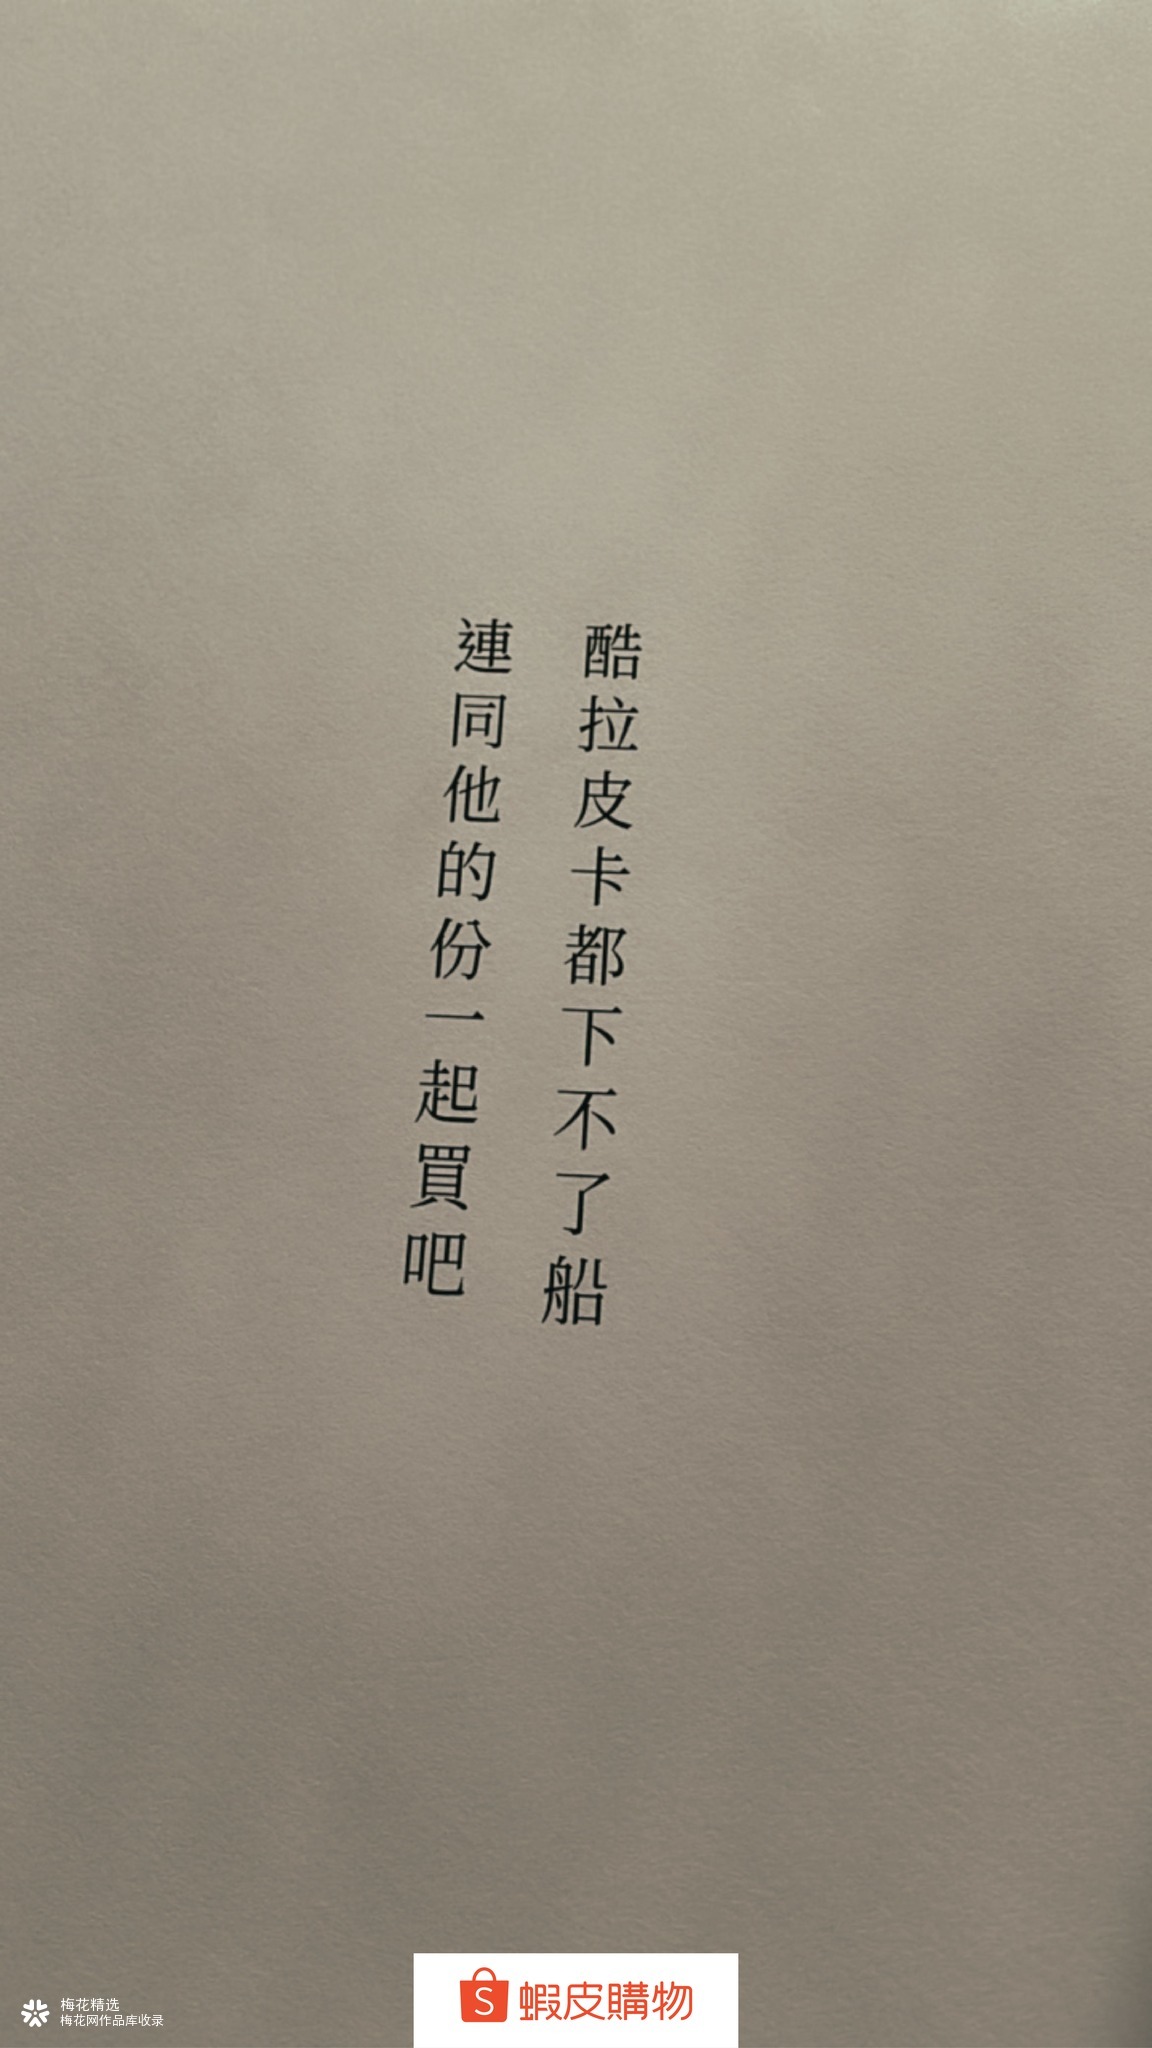 酷拉皮卡都下不了船
連同他的份一起買吧
蝦皮購物
梅花精选
梅花网作品库收录